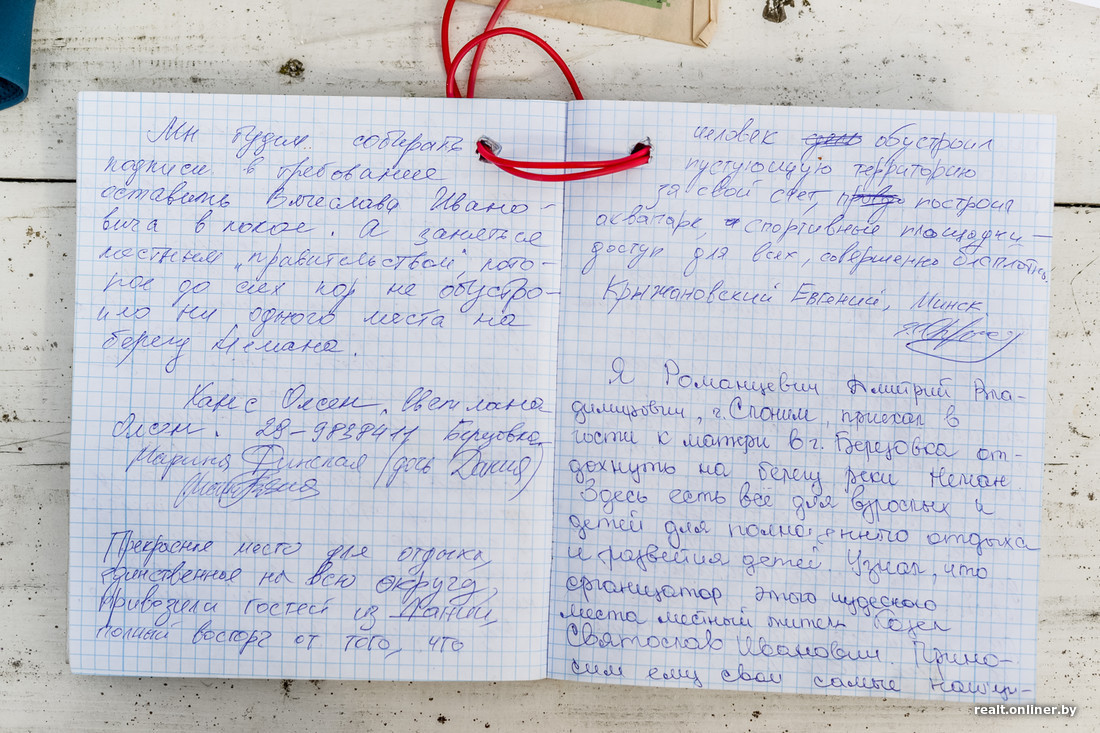 Мы будем собирать
подписи в требование
оставить Вячеслава Ивано-
вича в покое. А заняться
местным "правительством", кото-
рое до сих пор не обустро-
ило ни одного места на
берегу Немана.
Ханс Олсен, Светлана
Олсен. 29-9838411 Березовка
Марина Финская (дочь Дания)
Прекрасное место для отдыха,
единственное на всю округу,
привозили гостей из Дании,
полный восторг от того, что
человек обустроил
пустующую территорию
за свой счет, построил
аквапарк, спортивные площадки –
доступ для всех, совершенно бесплатно.
Крыжановский Евгений, Минск
Я Романцевич Дмитрий Вла-
димирович, г. Слоним, приехал в
гости к матери в г. Березовка от-
дохнуть на берегу реки Неман.
Здесь есть всё для взрослых и
детей для полноценного отдыха
и развития детей. Узнал, что
организатор этого чудесного
места местный житель Козел
Святослав Иванович. Прино-
сим ему свои самые
realt.onliner.by